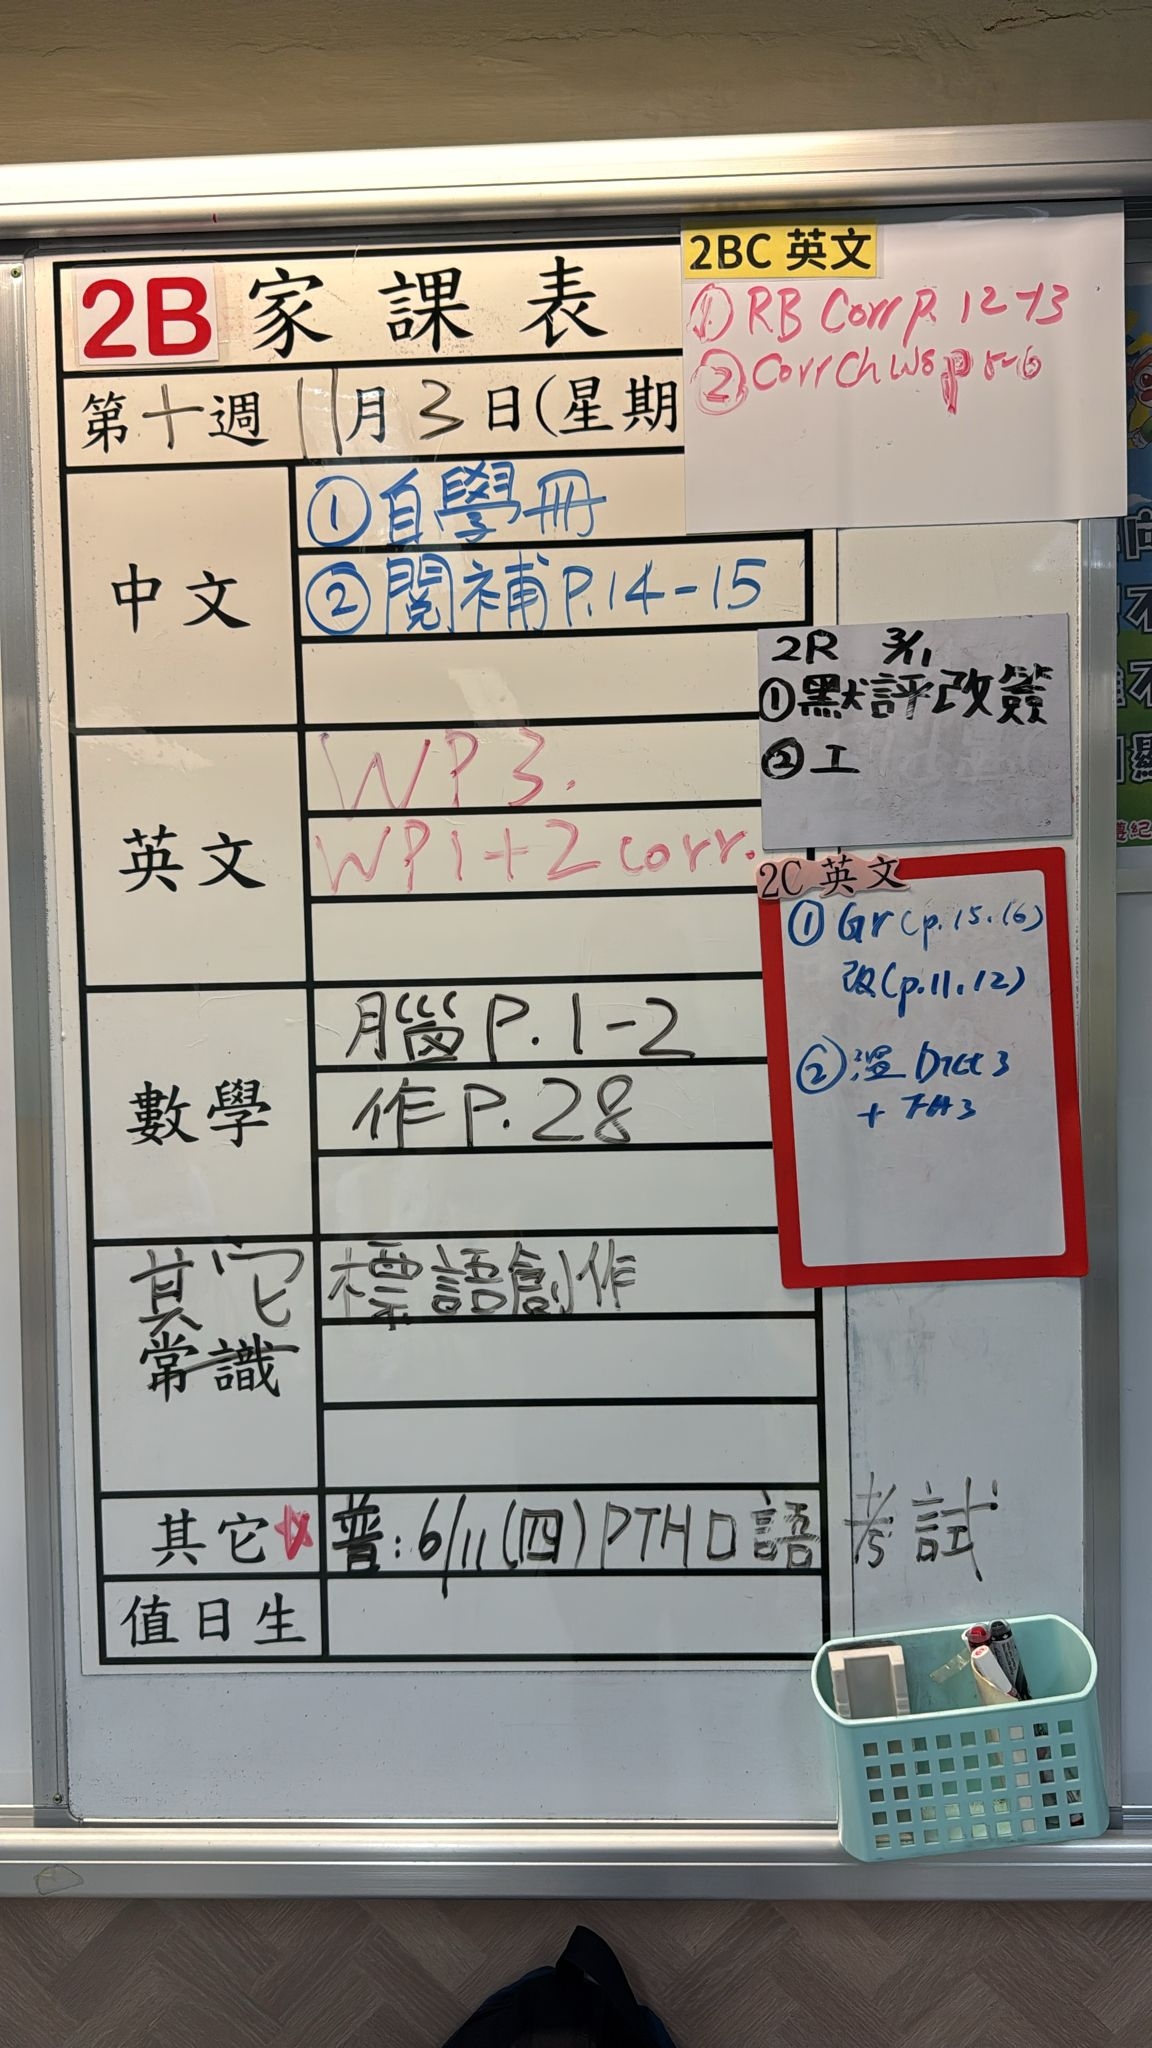 2B 家課表
第十週 11月3日(星期
中文
①自學冊
②閱補P.14-15
英文
WP3.
WP1+2 corr.
數學
腦P.1-2
作P.28
其它
常識
標語創作
其它
普:6/11(四)PTH口語考試
值日生
2BC 英文
① RB Corr p. 12-13
② Corr Ch WS p 5-6
2R 3/11
①默評改簽
②工
2C 英文
① Gr (p.15.16)
改(p.11.12)
② Dict 3
+